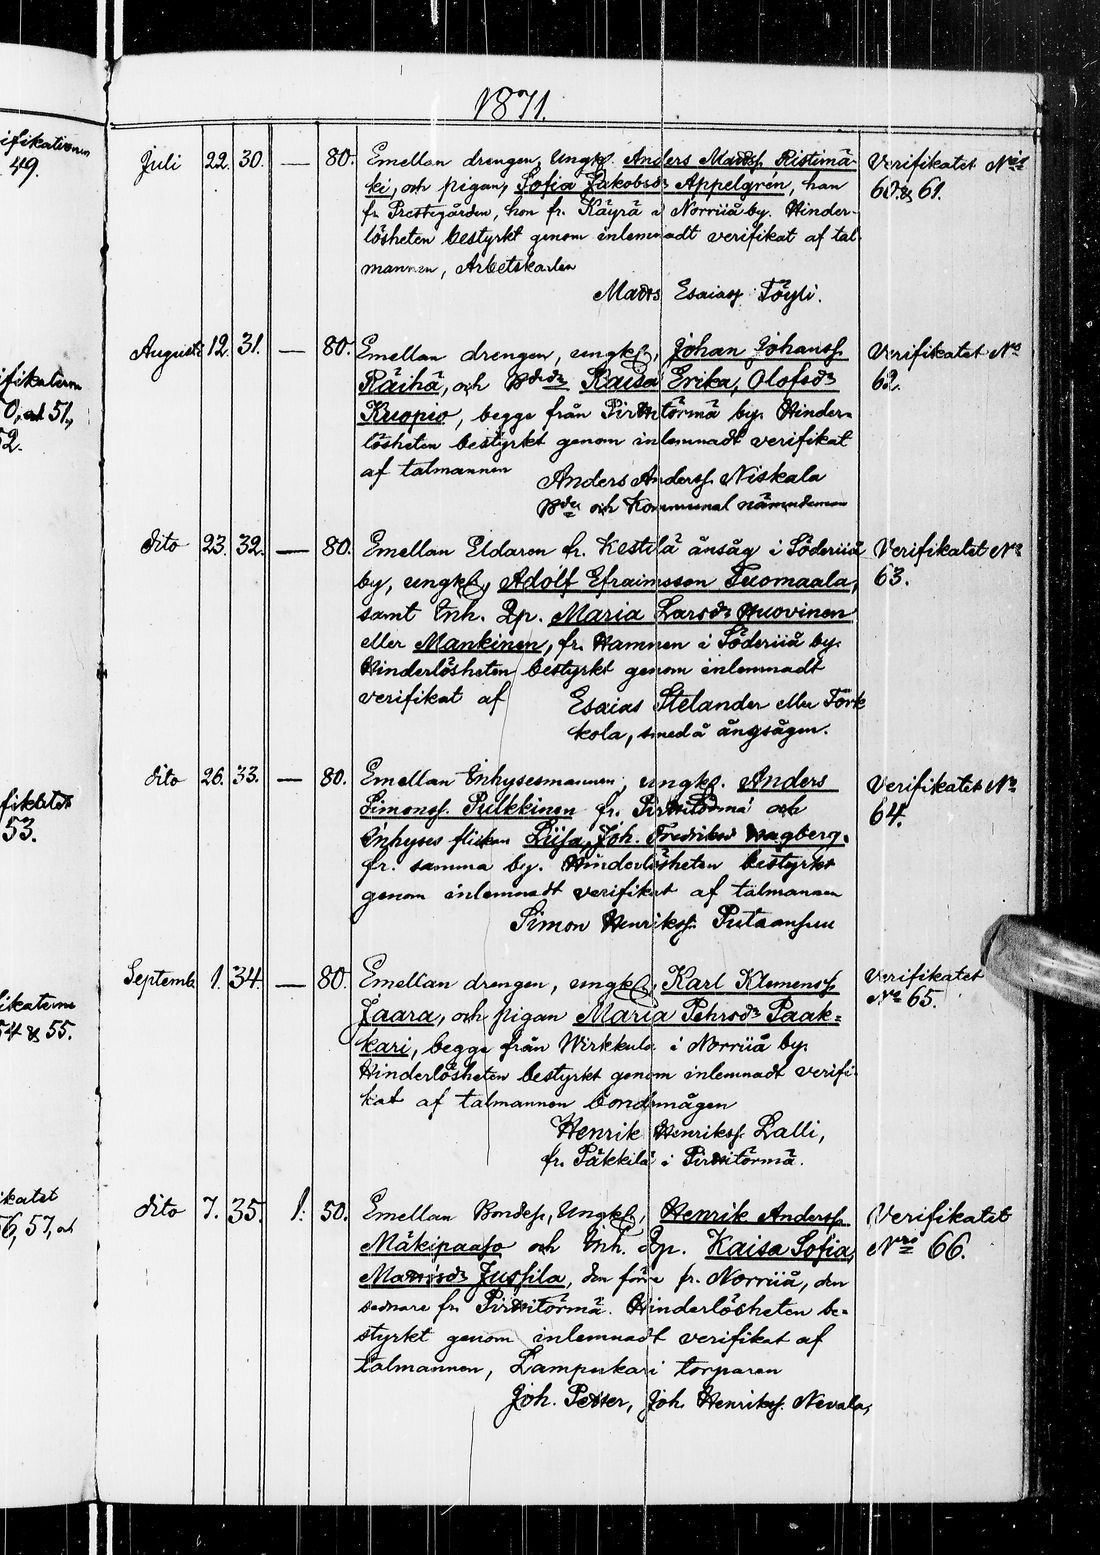 1871.
ifikationen
49.
ifikaterna
0, och 51,
52.
fikatet
53.
ikaterne
54 & 55.
ikatet
56, 57, och
Juli 22. 30. — 80. Emellan drengen, Ungk. Anders Madss. Ristimä-
ki, och pigan, Sofia Jakobsdr Appelgrén, han
fr. Prestegården, hon fr. Käyrä i Norriiå by. Hinder-
lösheten bestyrkt genom inlemnadt verifikat af tal-
mannen, Arbetskarlen
Matts Esaiass. Töyli.
Verifikatet Nris
60. & 61.
Augusti 12. 31. — 80. Emellan drengen, ungk., Johan Johanss.
Räihä, och Bdedr Kaisa Erika, Olofsdr
Kuopio, begge från Pirttitörmä by. Hinder-
lösheten bestyrkt genom inlemnadt verifikat
af talmannen
Anders Anderss. Niskala
Bde och Kommunal nämndeman
Verifikatet No
62.
dito 23. 32. — 80. Emellan Eldaren fr. Kestilä ånsåg i Söderiiå
by, ungk., Adolf Efraimsson Tuomaala,
samt Inh. Qp. Maria Larsdr Huovinen
eller Mankinen, fr. Hamnen i Söderiiå by.
Hinderlösheten bestyrkt genom inlemnadt
verifikat af
Esaias Stelander eller Törk
kola, smed å ångsågen.
Verifikatet No
63.
dito 26. 33. — 80. Emellan Inhysesmannen, ungk. Anders
Simonss. Pulkkinen fr. Pirttitörmä och
Inhyses flickan Liisa, Joh. Fredriksd Hagberg.
fr. samma by. Hinderlösheten bestyrkt
genom inlemnadt verifikat af talmannen
Simon Henrikss. Putaansuu
Verifikatet No
64.
Septemb. 1. 34. — 80. Emellan drengen, ungk., Karl Klemenss.
Jaara, och pigan Maria Pehrsdr Paak-
kari, begge från Wirkkula i Norriiå by.
Hinderlösheten bestyrkt genom inlemnadt verifi-
kat af talmannen bondemågen
Henrik Henrikss. Lalli,
fr. Päkkilä i Pirttitörmä.
Verifikatet
No 65.
dito 7. 35. 1. 50. Emellan Bondes., Ungk., Henrik Anderss.
Mäkipaaso och Inh. Qp. Kaisa Sofia
Mattsdr Jussila, den förre fr. Norriiå, den
sednare fr. Pirttitörmä. Hinderlösheten be-
styrkt genom inlemnadt verifikat af
talmannen, Lamperkari torparen
Joh. Petter, Joh. Henrikss. Nevala,
Verifikatet
Nro 66.